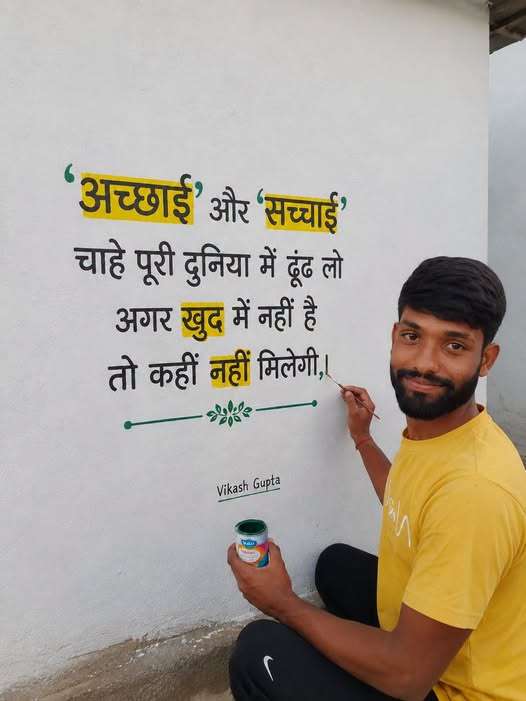 ‘अच्छाई’ और ‘सच्चाई’
चाहे पूरी दुनिया में ढूंढ लो
अगर खुद में नहीं है
तो कहीं नहीं मिलेगी,।
Vikash Gupta